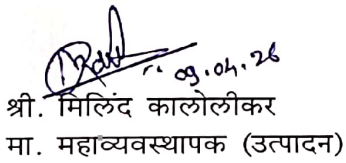 09.04.26
श्री. मिलिंद कालोलीकर
मा. महाव्यवस्थापक (उत्पादन)